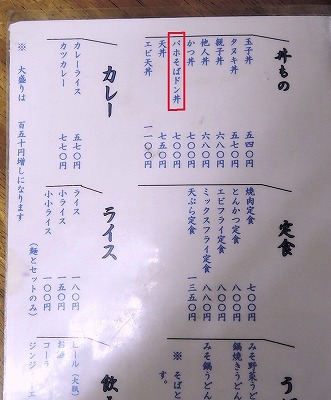 丼もの
玉子丼 五四〇円
タヌキ丼 五七〇円
親子丼 六八〇円
他人丼 六八〇円
かつ丼 七〇〇円
バホそばドン丼 七〇〇円
天丼 七五〇円
エビ天丼 一一〇〇円
カレー
カレーライス 五七〇円
カツカレー 七七〇円
※ 大盛りは 百五十円増しになります
定食
焼肉定食 七〇〇円
とんかつ定食 八〇〇円
エビフライ定食 八〇〇円
ミックスフライ定食 八〇〇円
天ぷら定食 一三五〇円
ライス
ライス 一八〇円
小ライス 一五〇円
小小ライス 一〇〇円
(麺とセットのみ)
う
みそ野菜う
鍋焼きうどん
みそ鍋うどん
※ そばと
す。
飲
ビール(大瓶)
お酒
コーラ
ジンジ